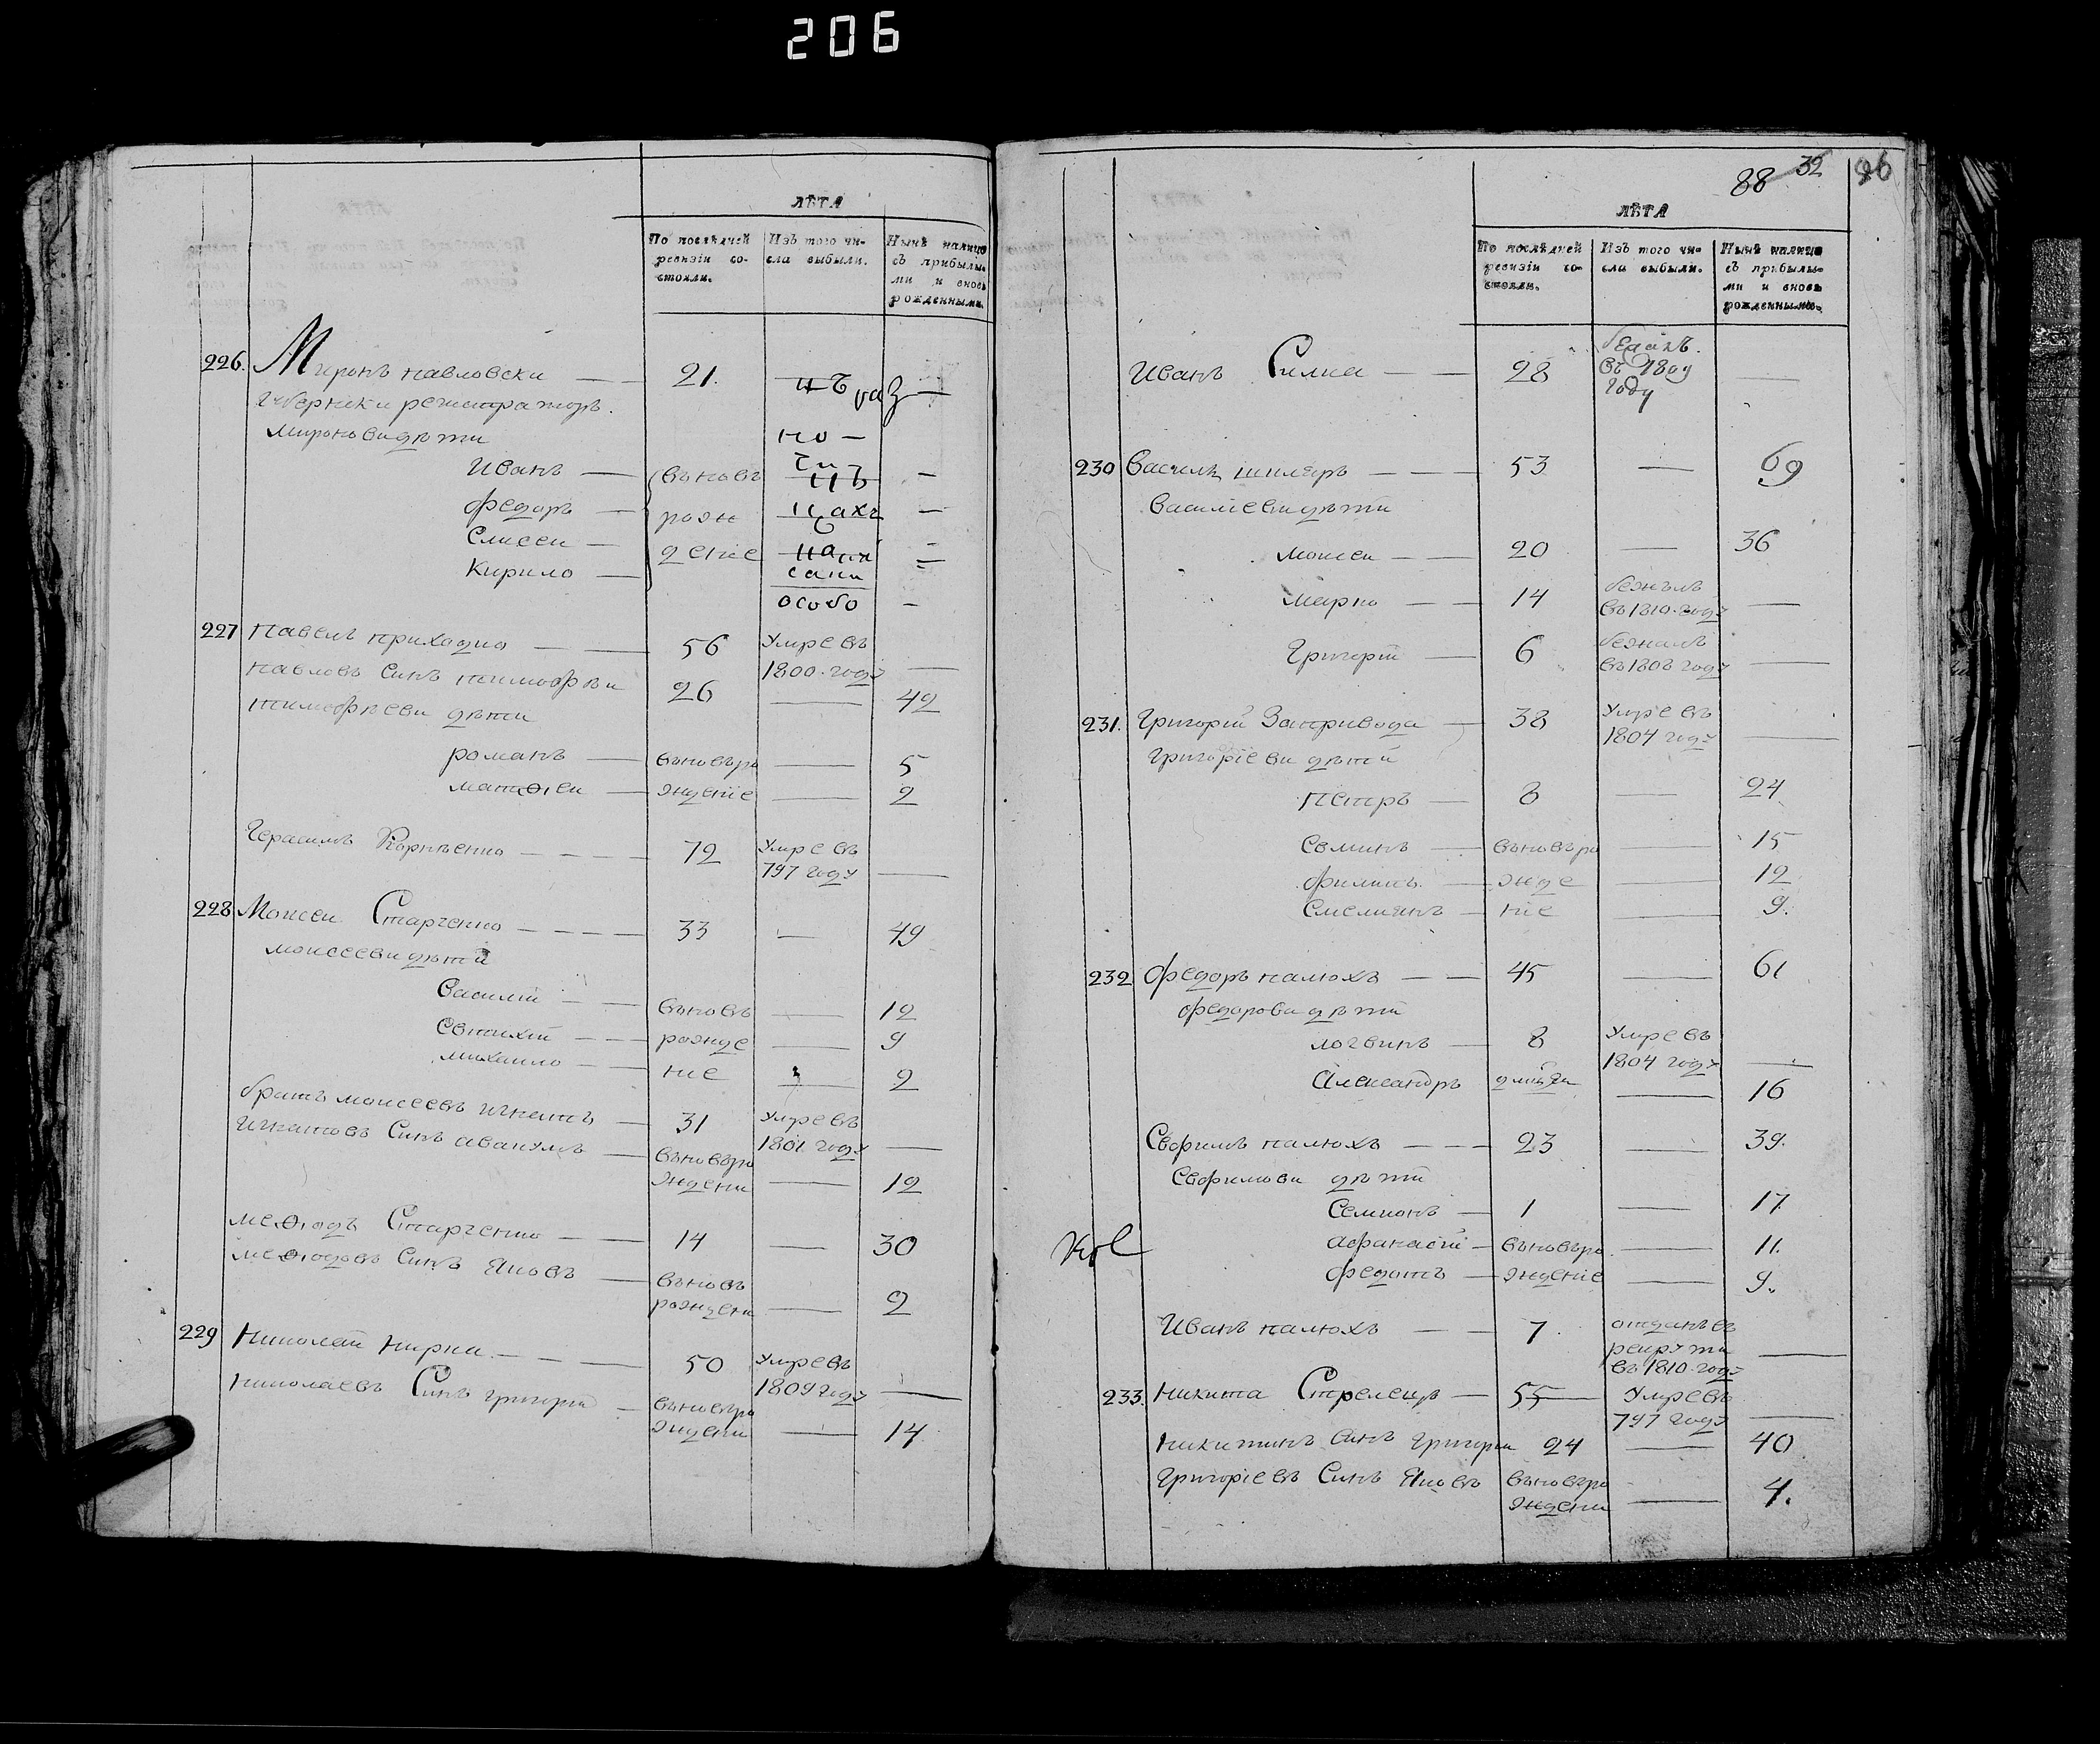 206
ЛѢТА
По послѣдней ревизіи состояли.
Изъ того числа выбыли.
Нынѣ налицо съ прибылыми и вновь рожденными.
226. Миронъ павловски — 21. —
губернски регистраторъ.
мироновидѣти но —
Иванъ — вьновъ —
Федоръ — рожн —
Елисеи — дение —
Кирило — —
особо —
227 Павелъ приходко — 56 Умре въ 1800. году —
павловъ Синъ тимофѣи 26 — 42
тимофѣеви дѣти
романъ — вьновьро — 5
матѳеи — ждение — 2
Герасимъ Корнѣенко — 72 Умре въ 797 году —
228 Моисеи Старченко — 33 — 49
моисеевидѣти
Василій — вьновъ — 12
Евтихій — рожде — 9
михаило — ние — 2
братъ моисеевъ игнатъ — 31 Умре въ 1801 году —
Игнатовъ Синъ авакумъ — вьновьро ждени — 12
меѳодъ Старченко — 14 — 30
меѳодовъ Синъ Яковъ — вьновъ рождени — 2
229 Николай кирка — 50 Умре въ 1809 году —
николаевъ Синъ григорій — вьновьро ждени — 14
88 32 96
ЛѢТА
По послѣдней ревизіи состояли.
Изъ того числа выбыли.
Нынѣ налицо съ прибылыми и вновь рожденными.
Иванъ Силка — 28 въ 1809 году —
230 Василь шкляръ — 53 — 69
Василіевидѣти
моисеи — 20 — 36
марко — 14 бежалъ въ 1810. году —
Григорій — 6 бежалъ въ 1808 году —
231. Григорій Запривода — 38 Умре въ 1804 году —
Григорѣеви дѣти
Петръ — 8 — 24
Семинъ — вьновьро — 15
филипъ — жде — 12
Емелиянъ — ние — 9.
232 Федоръ палюхъ — 45 — 61
федоровидѣти
логвинъ — 8 Умре въ 1804 году —
Александръ — 16
Евфимъ палюхъ — 23 — 39.
Евфимови дѣти
Семионъ — 1 — 17
афанасій — вьновьро — 11.
федотъ — ждение — 9.
Иванъ палюхъ — 7. отданъ въ рекруты въ 1810. году —
233. Никита Стрелецъ — 55 Умре въ 797 году —
никитинъ Синъ Григори 24 — 40
Григоріевъ Синъ Яковъ вьновьро ждени — 4.